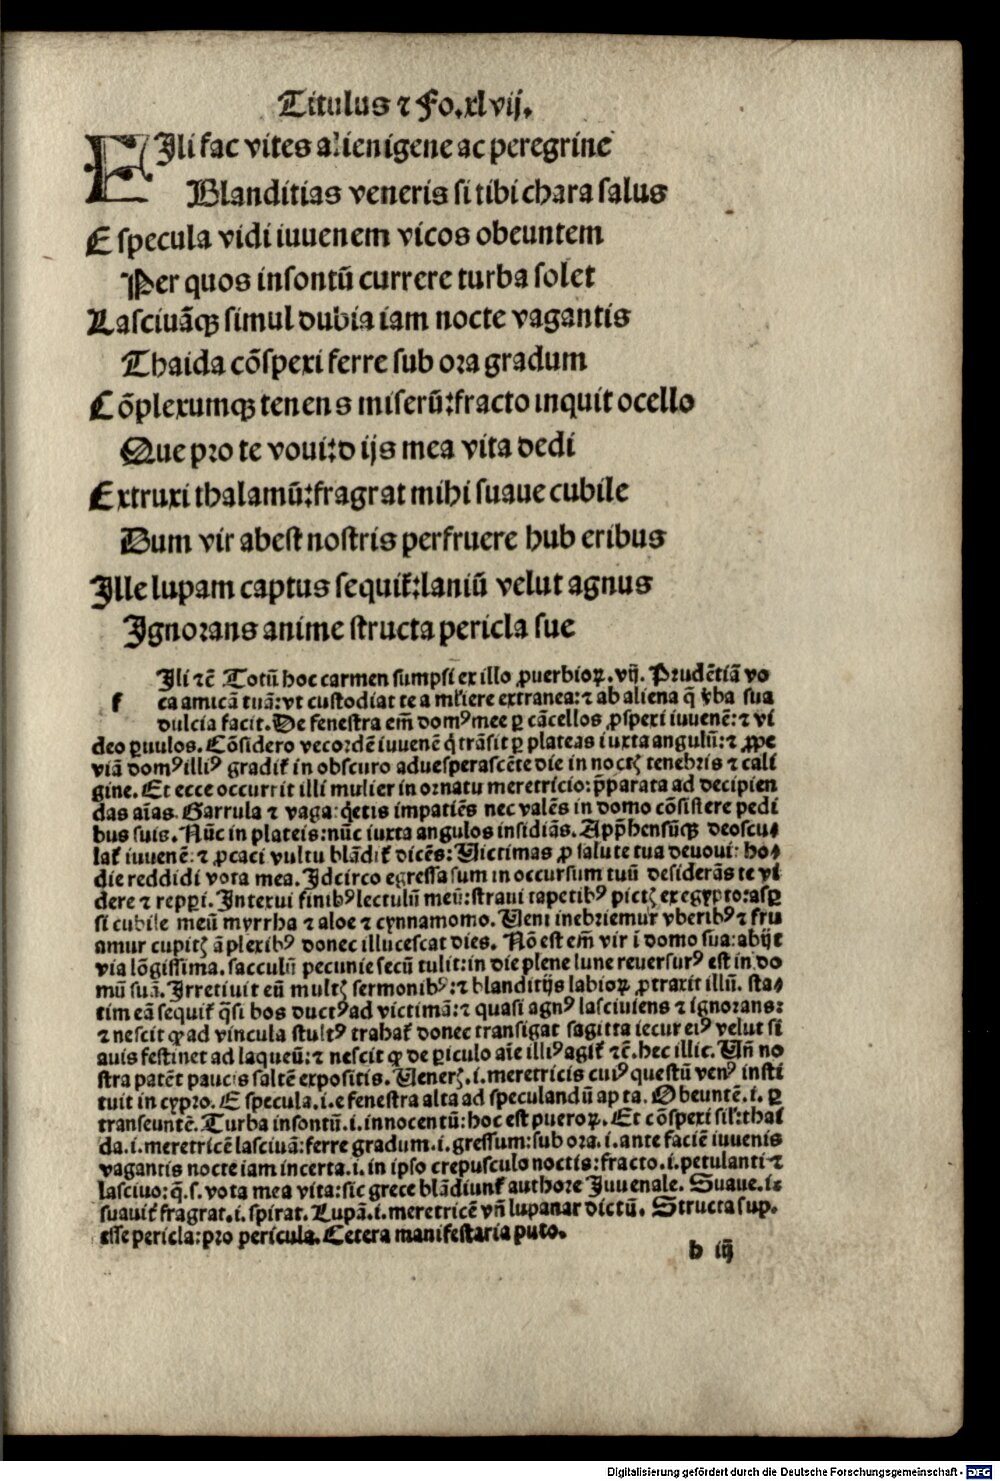 Titulus ⁊ Fo.xlvij.
FIli fac vites alienigene ac peregrine
Blanditias veneris si tibi chara salus
E specula vidi iuuenem vicos obeuntem
Per quos insontū currere turba solet
Lasciuāqꝫ simul dubia iam nocte vagantis
Thaida cōspexi ferre sub ora gradum
Cōplexumqꝫ tenens miserū:fracto inquit ocello
Que pro te voui:dijs mea vita dedi
Extruxi thalamū:fragrat mihi suaue cubile
Dum vir abest nostris perfruere hub eribus
Ille lupam captus sequit᷑:laniū velut agnus
Ignorans anime structa pericla sue
Ili ⁊c̄ Totū hoc carmen sumpsi ex illo ꝓuerbioꝝ. vij. Prudētiā vo
f ca amicā tuā: vt custodiat te a mliere extranea: ⁊ ab aliena q̄ v̄ba sua
dulcia facit. De fenestra em̄ domꝰ mee ꝑ cācellos ꝓspexi iuuenē: ⁊ vi
deo ꝑuulos. Cōsidero vecordē iuuenē q̇ trāsit ꝑ plateas iuxta angulū: ⁊ ꝓpe
viā domꝰ illiꝰ gradit᷑ in obscuro aduesperascēte die in noctꝭ tenebris ⁊ cali
gine. Et ecce occurrit illi mulier in ornatu meretricio: p̄parata ad decipien
das aīas. Garrula ⁊ vaga: q̇etis impatiēs nec valēs in domo cōsistere pedi
bus suis. Nūc in plateis: nūc iuxta angulos insidiās. App̄hensūqꝫ deoscu⸗
lat᷑ iuuenē: ⁊ ꝓcaci vultu blādit᷑ dicēs: Victimas ꝓ salute tua deuoui: ho⸗
die reddidi vota mea. Idcirco egressa sum in occursum tuū desiderās te vi
dere ⁊ repꝑi. Intexui finibꝰ lectulū meū: straui tapetibꝰ pictꝭ ex egypto: asꝑ
si cubile meū myrrha ⁊ aloe ⁊ cynnamomo. Veni inebriemur vberibꝰ ⁊ fru
amur cupitꝭ āplexibꝰ donec illucescat dies. Nō est em̄ vir ī domo sua: abijt
via lōgissima. sacculū pecunie secū tulit: in die plene lune reuersurꝰ est in do
mū suā. Irretiuit eū multꝭ sermonibꝰ: ⁊ blanditijs labioꝝ ꝓtraxit illū. sta⸗
tim eā sequit᷑ q̄si bos ductꝰ ad victimā: ⁊ quasi agnꝰ lasciuiens ⁊ ignorans:
⁊ nescit ꝙ ad vincula stultꝰ trahat᷑ donec transigat sagitta iecur eiꝰ velut si
auis festinet ad laqueū: ⁊ nescit ꝙ de ꝑiculo aīe illiꝰ agit᷑ ⁊c̄. hec illic. Vn̄ no
stra patēt paucis saltē expositis. Venerꝭ .i. meretricis cuiꝰ questū venꝰ insti
tuit in cypro. E specula .i. e fenestra alta ad speculandū apta. Obeuntē .i. ꝑ
transeuntē. Turba insontū .i. innocentū: hoc est pueroꝝ. Et cōspexi sil̄: thai
da .i. meretricē lasciuā: ferre gradum .i. gressum: sub ora .i. ante faciē iuuenis
vagantis nocte iam incerta .i. in ipso crepusculo noctis: fracto .i. petulanti ⁊
lasciuo: q̄ .s. vota mea vita: sic grece blādiunt᷑ authore Juuenale. Suaue .i⸗
suauit᷑ fragrat .i. spirat. Lupā .i. meretricē vn̄ lupanar dictū. Structa sup.
esse pericla: pro pericula. Cetera manifestaria puto.
h iij
Digitalisierung gefördert durch die Deutsche Forschungsgemeinschaft - DFG